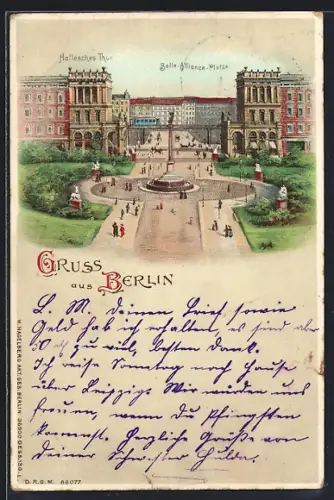 Hallesches Thor
Belle-Alliance-Platze
GRUSS
aus BERLIN
L. M. Deinen Brief, sowie
Geld hab ich erhalten, es sind aber
30 zu viel, besten Dank.
Ich reise Sonntag nach Hause
über Leipzig. Wir würden uns
freuen, wenn du Pfingsten
kommst. Herzliche Grüße von
Deiner Schwester Hulda.
W. HAGELBERG AKT.-GES. BERLIN
D.R.G.M. 88077